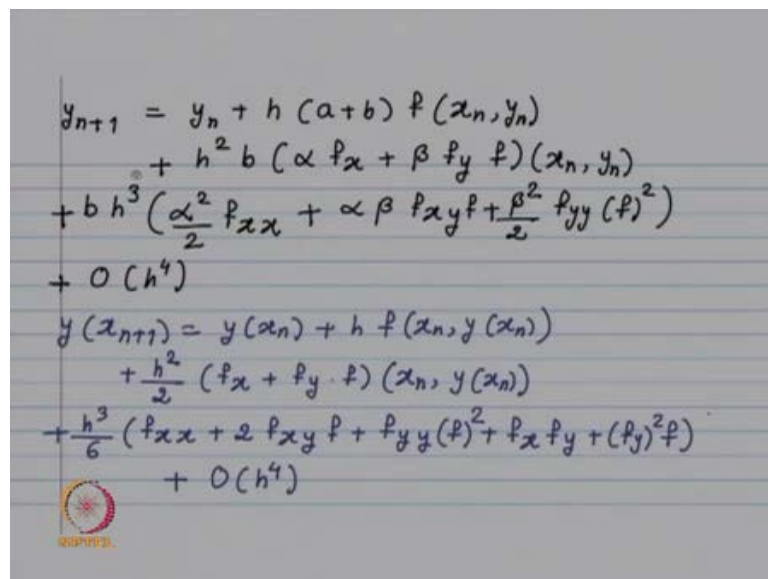 y_{n+1} = y_n + h (a+b) f (x_n, y_n)
+ h^2 b (α f_x + β f_y f) (x_n, y_n)
+ b h^3 (α^2/2 f_{xx} + α β f_{xy} f + β^2/2 f_{yy} (f)^2)
+ O (h^4)
y (x_{n+1}) = y (x_n) + h f (x_n, y (x_n))
+ h^2/2 (f_x + f_y · f) (x_n, y (x_n))
+ h^3/6 (f_{xx} + 2 f_{xy} f + f_{yy} (f)^2 + f_x f_y + (f_y)^2 f)
+ O (h^4)
NPTEL